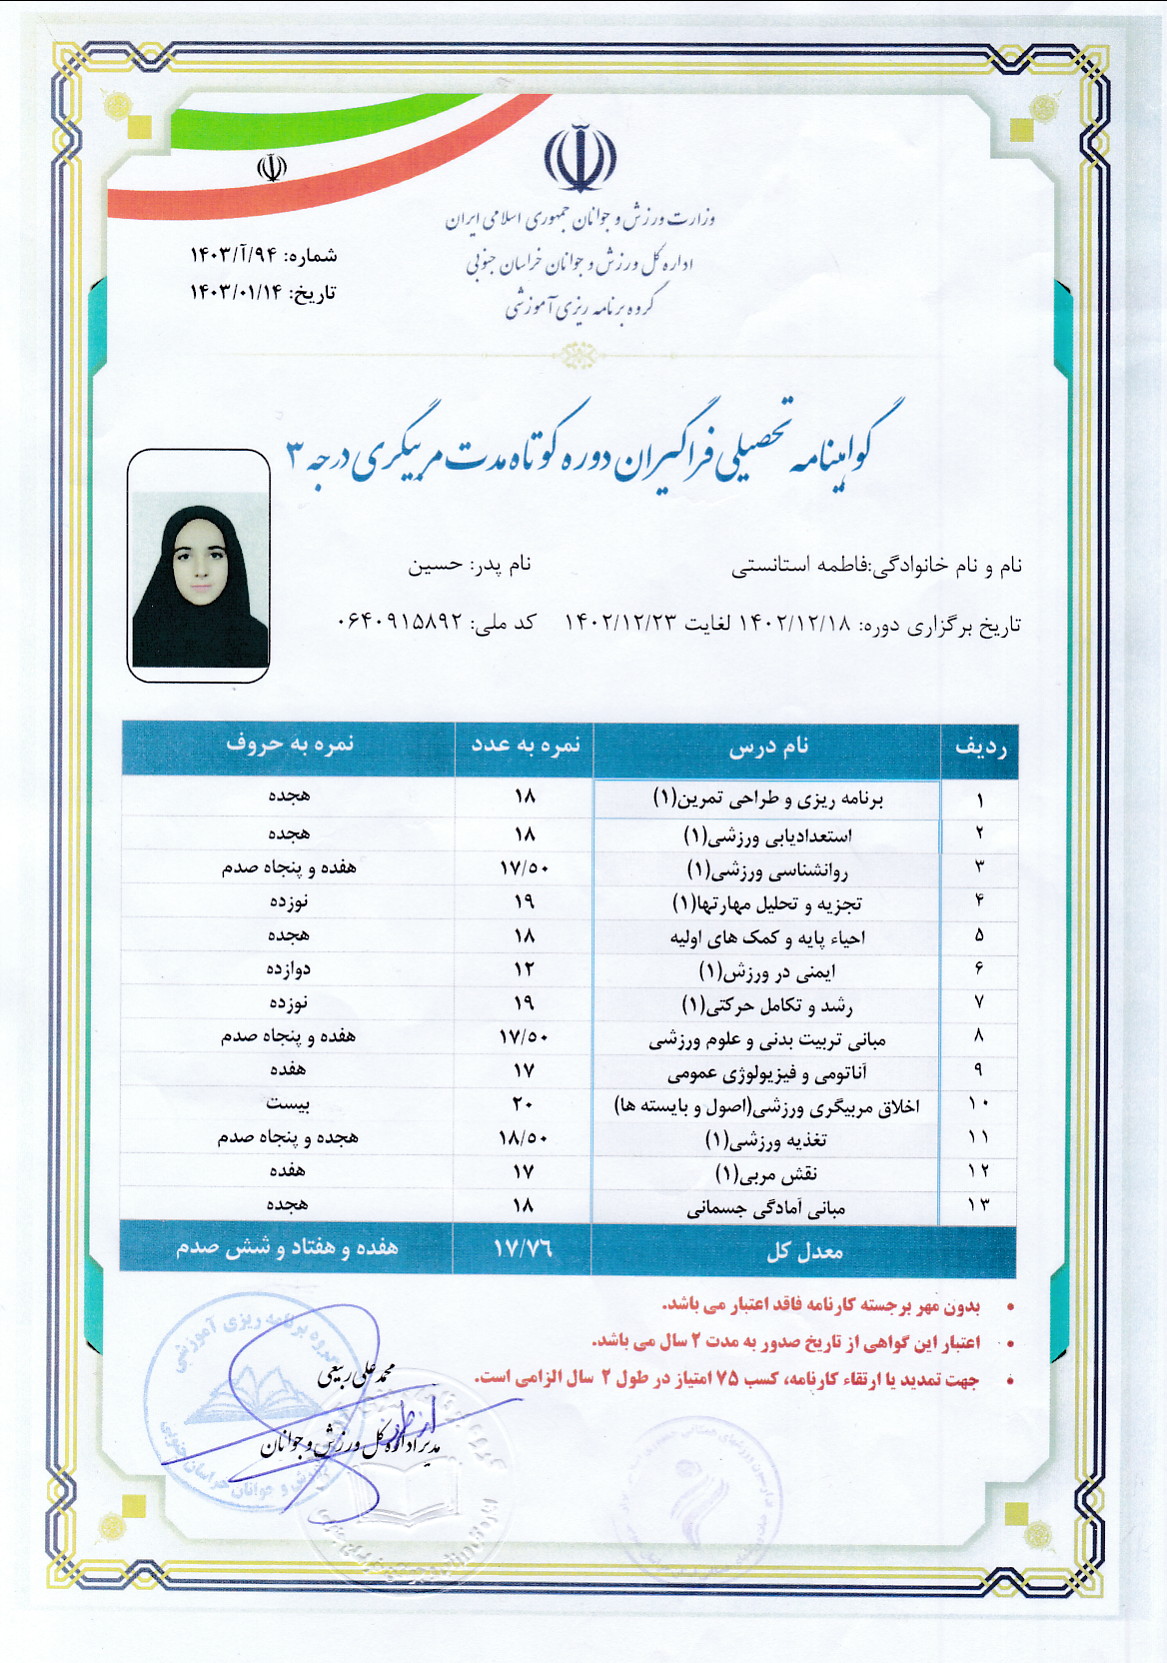 وزارت ورزش و جوانان جمهوری اسلامی ایران
اداره کل ورزش و جوانان خراسان جنوبی
گروه برنامه ریزی آموزشی
شماره: ۱۴۰۳/آ/۹۴
تاریخ: ۱۴۰۳/۰۱/۱۴
گواهینامه تحصیلی فراگیران دوره کوتاه مدت مربیگری درجه ۳
نام و نام خانوادگی:فاطمه استانستی نام پدر: حسین
تاریخ برگزاری دوره: ۱۴۰۲/۱۲/۱۸ لغایت ۱۴۰۲/۱۲/۲۳ کد ملی: ۰۶۴۰۹۱۵۸۹۲
ردیف نام درس نمره به عدد نمره به حروف
۱ برنامه ریزی و طراحی تمرین(۱) ۱۸ هجده
۲ استعدادیابی ورزشی(۱) ۱۸ هجده
۳ روانشناسی ورزشی(۱) ۱۷/۵۰ هفده و پنجاه صدم
۴ تجزیه و تحلیل مهارتها(۱) ۱۹ نوزده
۵ احیاء پایه و کمک های اولیه ۱۸ هجده
۶ ایمنی در ورزش(۱) ۱۲ دوازده
۷ رشد و تکامل حرکتی(۱) ۱۹ نوزده
۸ مبانی تربیت بدنی و علوم ورزشی ۱۷/۵۰ هفده و پنجاه صدم
۹ آناتومی و فیزیولوژی عمومی ۱۷ هفده
۱۰ اخلاق مربیگری ورزشی(اصول و بایسته ها) ۲۰ بیست
۱۱ تغذیه ورزشی(۱) ۱۸/۵۰ هجده و پنجاه صدم
۱۲ نقش مربی(۱) ۱۷ هفده
۱۳ مبانی آمادگی جسمانی ۱۸ هجده
معدل کل ۱۷/۷۶ هفده و هفتاد و شش صدم
• بدون مهر برجسته کارنامه فاقد اعتبار می باشد.
• اعتبار این گواهی از تاریخ صدور به مدت ۲ سال می باشد.
• جهت تمدید یا ارتقاء کارنامه، کسب ۷۵ امتیاز در طول ۲ سال الزامی است.
محمد علی ربیعی
از طرف
مدیر اداره کل ورزش و جوانان
گروه برنامه ریزی آموزشی
ورزش و جوانان خراسان جنوبی